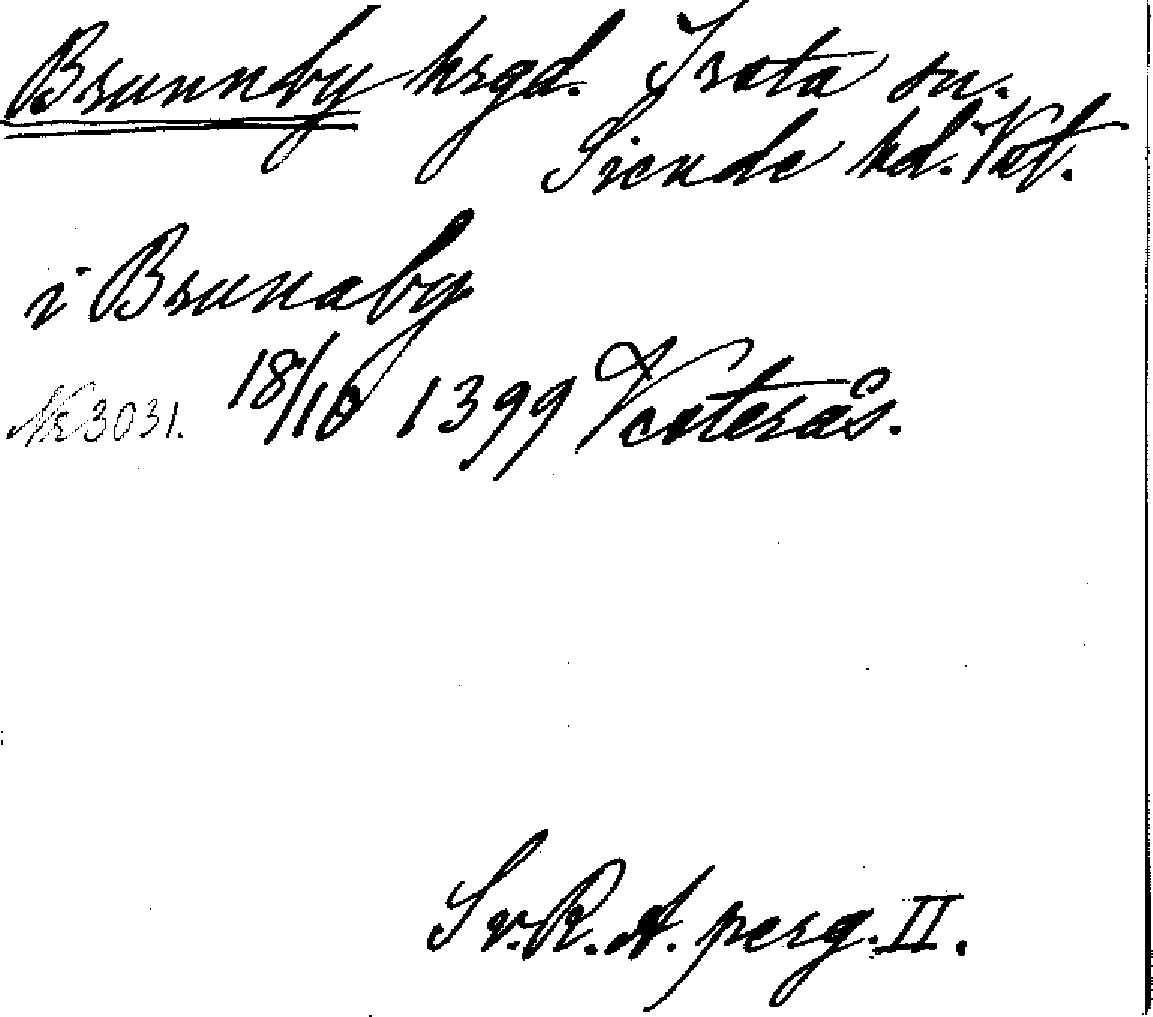 Brunnby hrgd. Irsta sn.
Siende hd. Vst.
i Brunaby
Nr 3031. 18/10 1399 Vesterås.
Sv. R. A. perg. II.